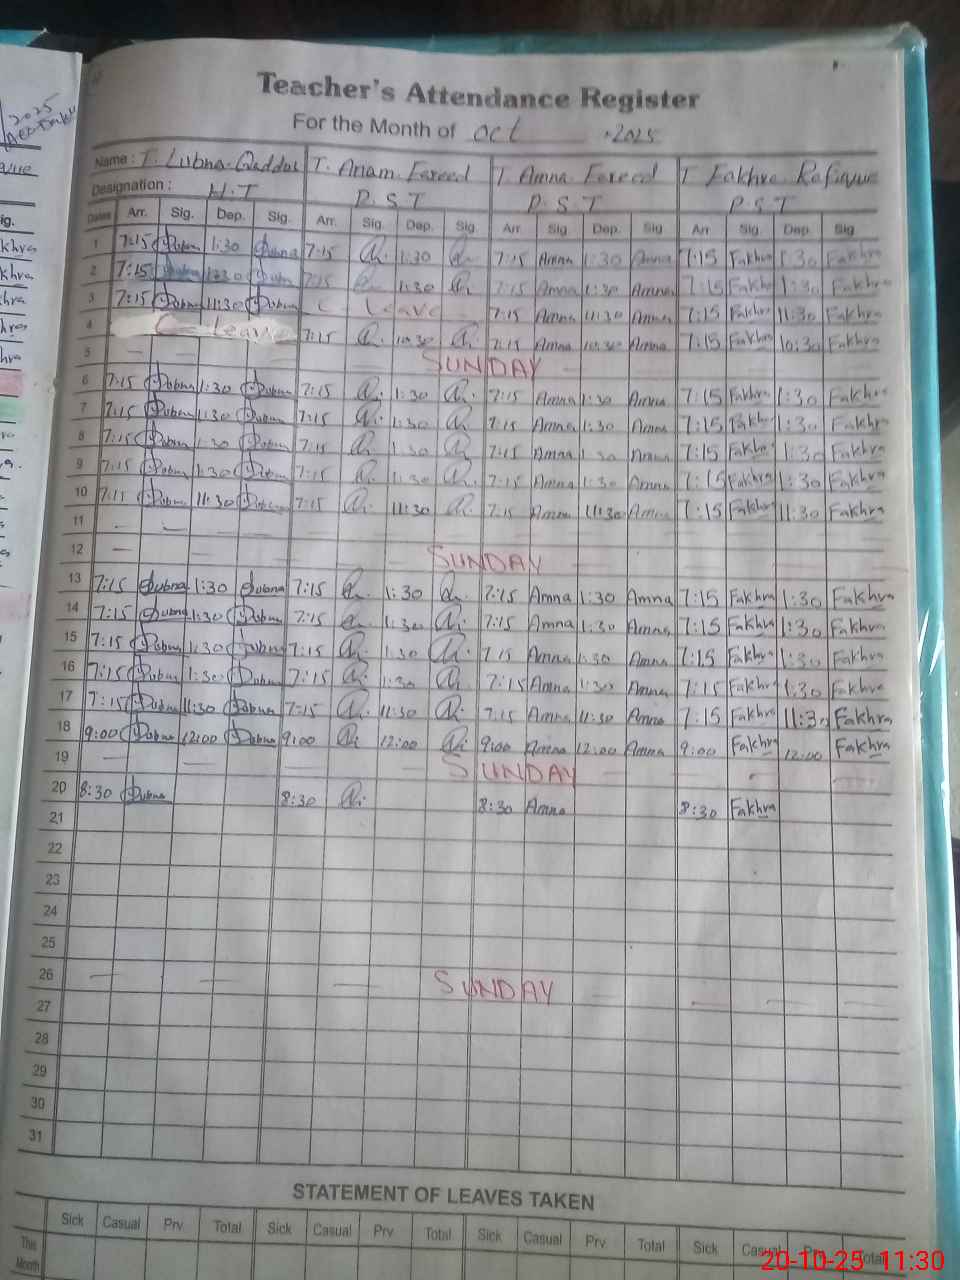 Teacher's Attendance Register
For the Month of Oct 2025
Name : T. Lubna Qaddus T. Anam Fareed T. Amna Fareed T Fakhra
Designation : H.T P.S.T P.S.T P.S.T
Dates Arr. Sig. Dep. Sig. Arr. Sig. Dep. Sig. Arr Sig. Dep. Sig Arr Sig. Dep. Sig
1 7:15 Lubna 1:30 Lubna 7:15 1:30 7:15 Amna 1:30 Amna 7:15 Fakhra 1:30 Fakhra
2 7:15 Lubna 1:30 Lubna 7:15 1:30 7:15 Amna 1:30 Amna 7:15 Fakhra 1:30 Fakhra
3 7:15 Lubna 11:30 Lubna C- Leave 7:15 Amna 11:30 Amna 7:15 Fakhra 11:30 Fakhra
4 C- leave 7:15 10:30 7:15 Amna 10:30 Amna 7:15 Fakhra 10:30 Fakhra
5 SUNDAY
6 7:15 Lubna 1:30 Lubna 7:15 1:30 7:15 Amna 1:30 Amna 7:15 Fakhra 1:30 Fakhra
7 7:15 Lubna 1:30 Lubna 7:15 1:30 7:15 Amna 1:30 Amna 7:15 Fakhra 1:30 Fakhra
8 7:15 Lubna 1:30 Lubna 7:15 1:30 7:15 Amna 1:30 Amna 7:15 Fakhra 1:30 Fakhra
9 7:15 Lubna 1:30 Lubna 7:15 1:30 7:15 Amna 1:30 Amna 7:15 Fakhra 1:30 Fakhra
10 7:15 Lubna 11:30 Lubna 7:15 11:30 7:15 Amna 11:30 Amna 7:15 Fakhra 11:30 Fakhra
11
12 SUNDAY
13 7:15 Lubna 1:30 Lubna 7:15 1:30 7:15 Amna 1:30 Amna 7:15 Fakhra 1:30 Fakhra
14 7:15 Lubna 1:30 Lubna 7:15 1:30 7:15 Amna 1:30 Amna 7:15 Fakhra 1:30 Fakhra
15 7:15 Lubna 1:30 Lubna 7:15 1:30 7:15 Amna 1:30 Amna 7:15 Fakhra 1:30 Fakhra
16 7:15 Lubna 1:30 Lubna 7:15 1:30 7:15 Amna 1:30 Amna 7:15 Fakhra 1:30 Fakhra
17 7:15 Lubna 11:30 Lubna 7:15 11:30 7:15 Amna 11:30 Amna 7:15 Fakhra 11:30 Fakhra
18 9:00 Lubna 12:00 Lubna 9:00 12:00 9:00 Amna 12:00 Amna 9:00 Fakhra 12:00 Fakhra
19 SUNDAY
20 8:30 Lubna 8:30 8:30 Amna 8:30 Fakhra
21
22
23
24
25
26 SUNDAY
27
28
29
30
31
STATEMENT OF LEAVES TAKEN
Sick Casual Prv Total Sick Casual Prv Total Sick Casual Prv Total Sick Casual Prv Total
This Month
20-10-25 11:30